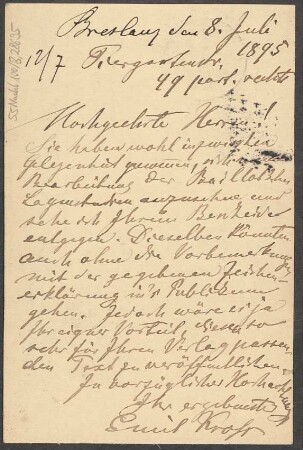 Breslau, den 8. Juli
12/7 Tiergartenstr. 1895
49 part. rechts
Hochgeehrter Herr!
Sie haben wohl inzwischen
Gelegenheit gewonnen, sich die
Bearbeitung der Baillotschen
anzusehen und
sehe ich Ihrem Bescheide
entgegen. Dieselben könnten
auch ohne die Vorbemerkung
mit der gegebenen Zeichen-
erklärung in's Publikum
gehen. Jedoch wäre es ja
Ihr eigner Vorteil, diesen so
sehr für Ihren Verlag passen-
den Text zu veröffentlichen.
In vorzüglicher Hochachtung
Ihr ergebenster
Emil Kross